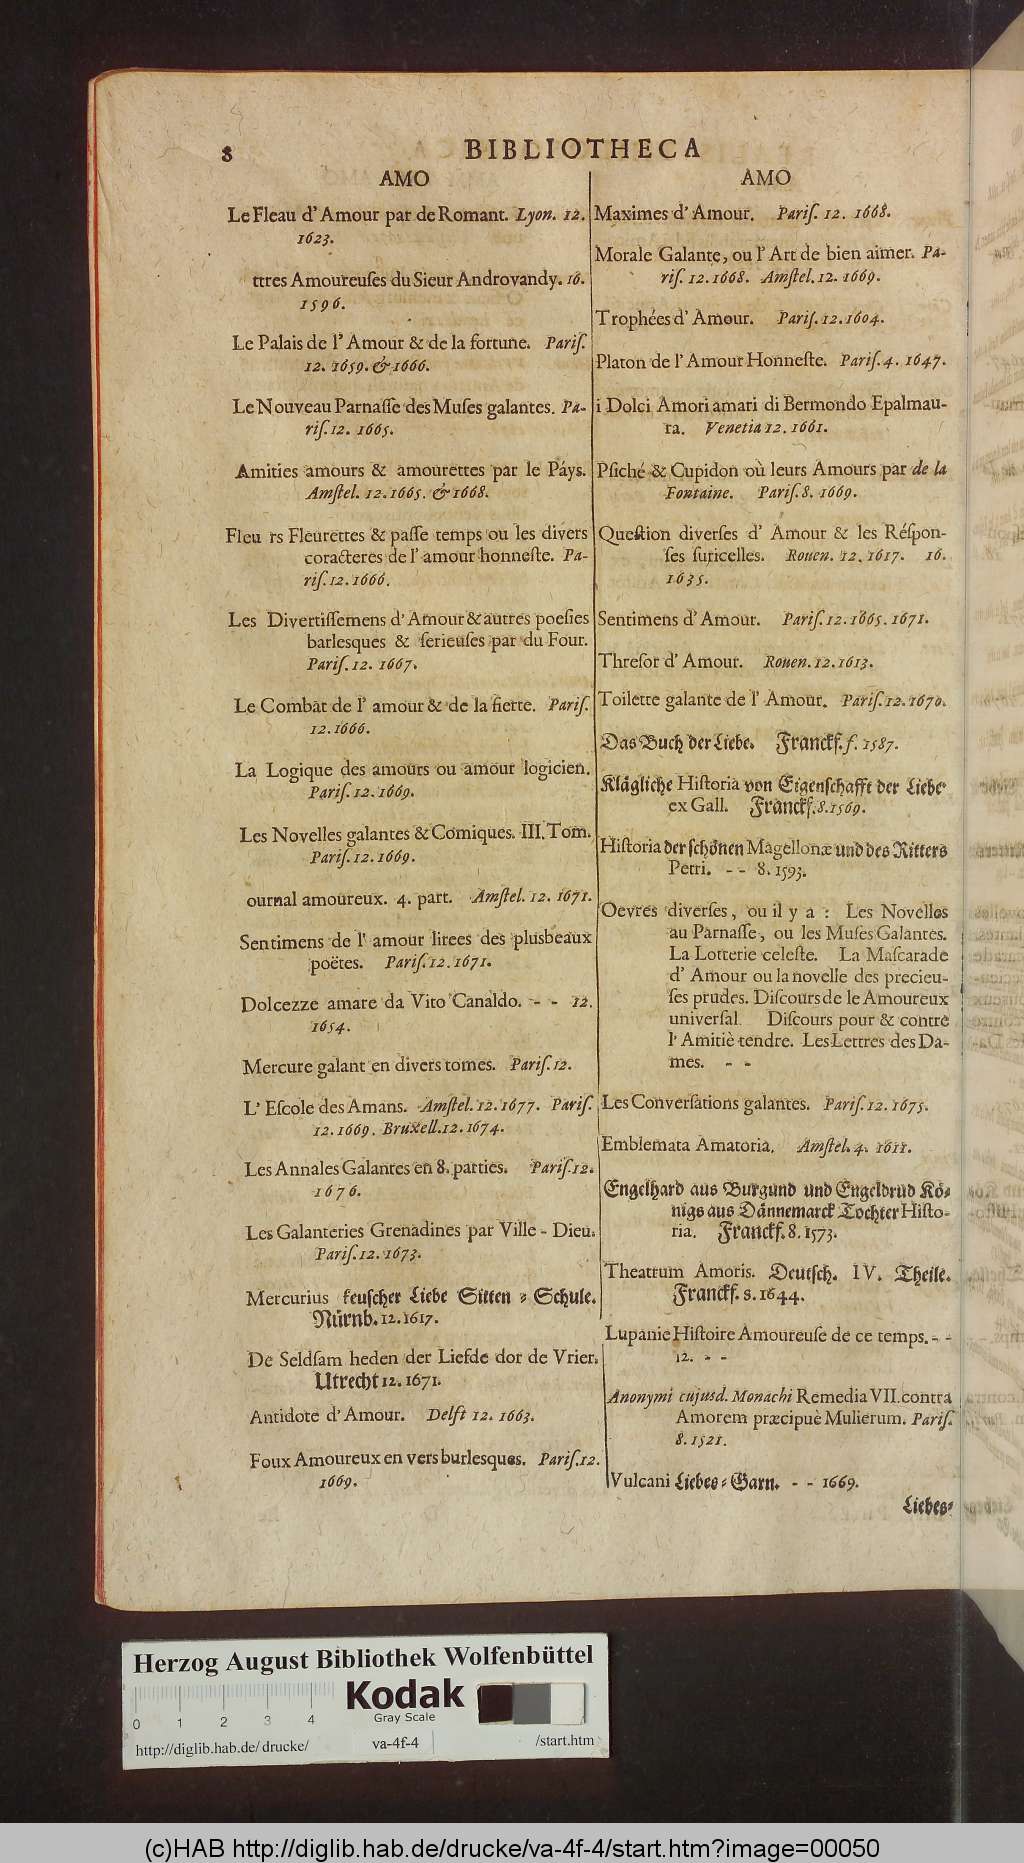 8
BIBLIOTHECA
AMO
Le Fleau d' Amour par de Romant. Lyon. 12.
1623.
ttres Amoureuſes du Sieur Androvandy. 16.
1596.
Le Palais de l' Amour & de la fortune. Pariſ.
12. 1659. & 1666.
Le Nouveau Parnaſſe des Muſes galantes. Pa-
riſ. 12. 1665.
Amities amours & amourettes par le Páys.
Amſtel. 12. 1665. & 1668.
Fleu rs Fleurettes & paſſe temps ou les divers
coracteres de l' amour honneſte. Pa-
riſ. 12. 1666.
Les Divertiſſemens d' Amour & autres poeſies
barlesques & ſerieuſes par du Four.
Pariſ. 12. 1667.
Le Combat de l' amour & de la fierte. Pariſ.
12. 1666.
La Logique des amours ou amour logicien.
Pariſ. 12. 1669.
Les Novelles galantes & Comiques. III. Tom.
Pariſ. 12. 1669.
ournal amoureux. 4. part. Amſtel. 12. 1671.
Sentimens de l' amour lirees des plusbeaux
poëtes. Pariſ. 12. 1671.
Dolcezze amare da Vito Canaldo. - - 12.
1654.
Mercure galant en divers tomes. Pariſ. 12.
L' Eſcole des Amans. Amſtel. 12. 1677. Pariſ.
12. 1669. Bruxell. 12. 1674.
Les Annales Galantes en 8. parties. Pariſ. 12.
1676.
Les Galanteries Grenadines par Ville - Dieu.
Pariſ. 12. 1673.
Mercurius keuſcher Liebe Sitten = Schule.
Nürnb. 12. 1617.
De Seldſam heden der Liefde dor de Vrier.
Utrecht 12. 1671.
Antidote d' Amour. Delft 12. 1663.
Foux Amoureux en vers burlesques. Pariſ. 12.
1669.
AMO
Maximes d' Amour. Pariſ. 12. 1668.
Morale Galante, ou l' Art de bien aimer. Pa-
riſ. 12. 1668. Amſtel. 12. 1669.
Trophées d' Amour. Pariſ. 12. 1604.
Platon de l' Amour Honneſte. Pariſ. 4. 1647.
i Dolci Amori amari di Bermondo Epalmau-
ra. Venetia 12. 1661.
Pſiché & Cupidon où leurs Amours par de la
Fontaine. Pariſ. 8. 1669.
Queſtion diverſes d' Amour & les Réſpon-
ſes ſuricelles. Rouen. 12. 1617. 16.
1635.
Sentimens d' Amour. Pariſ. 12. 1665. 1671.
Threſor d' Amour. Rouen. 12. 1613.
Toilette galante de l' Amour. Pariſ. 12. 1670.
Das Buch der Liebe. Franckf. f. 1587.
Klägliche Hiſtoria von Eigenſchafft der Liebe
ex Gall. Franckf. 8. 1569.
Hiſtoria der ſchönen Magellonæ und des Ritters
Petri. - - 8. 1593.
Oevres diverſes, ou il y a : Les Novelles
au Parnaſſe, ou les Muſes Galantes.
La Lotterie celeſte. La Maſcarade
d' Amour ou la novelle des precieu-
ſes prudes. Diſcours de le Amoureux
univerſal. Diſcours pour & contre
l' Amitiè tendre. Les Lettres des Da-
mes. - -
Les Converſations galantes. Pariſ. 12. 1675.
Emblemata Amatoria. Amſtel. 4. 1611.
Engelhard aus Burgund und Engeldrud Kö-
nigs aus Dännemarck Tochter Hiſto-
ria. Franckf. 8. 1573.
Theatrum Amoris. Deutſch. IV. Theile.
Franckf. 8. 1644.
Lupanie Hiſtoire Amoureuſe de ce temps. - -
12. - -
Anonymi cujusd. Monachi Remedia VII. contra
Amorem præcipuè Mulierum. Pariſ.
8. 1521.
Vulcani Liebes = Garn. - - 1669.
Liebes=
Herzog August Bibliothek Wolfenbüttel
Kodak
Gray Scale
0 1 2 3 4
http://diglib.hab.de/drucke/ va-4f-4 /start.htm
(c)HAB http://diglib.hab.de/drucke/va-4f-4/start.htm?image=00050